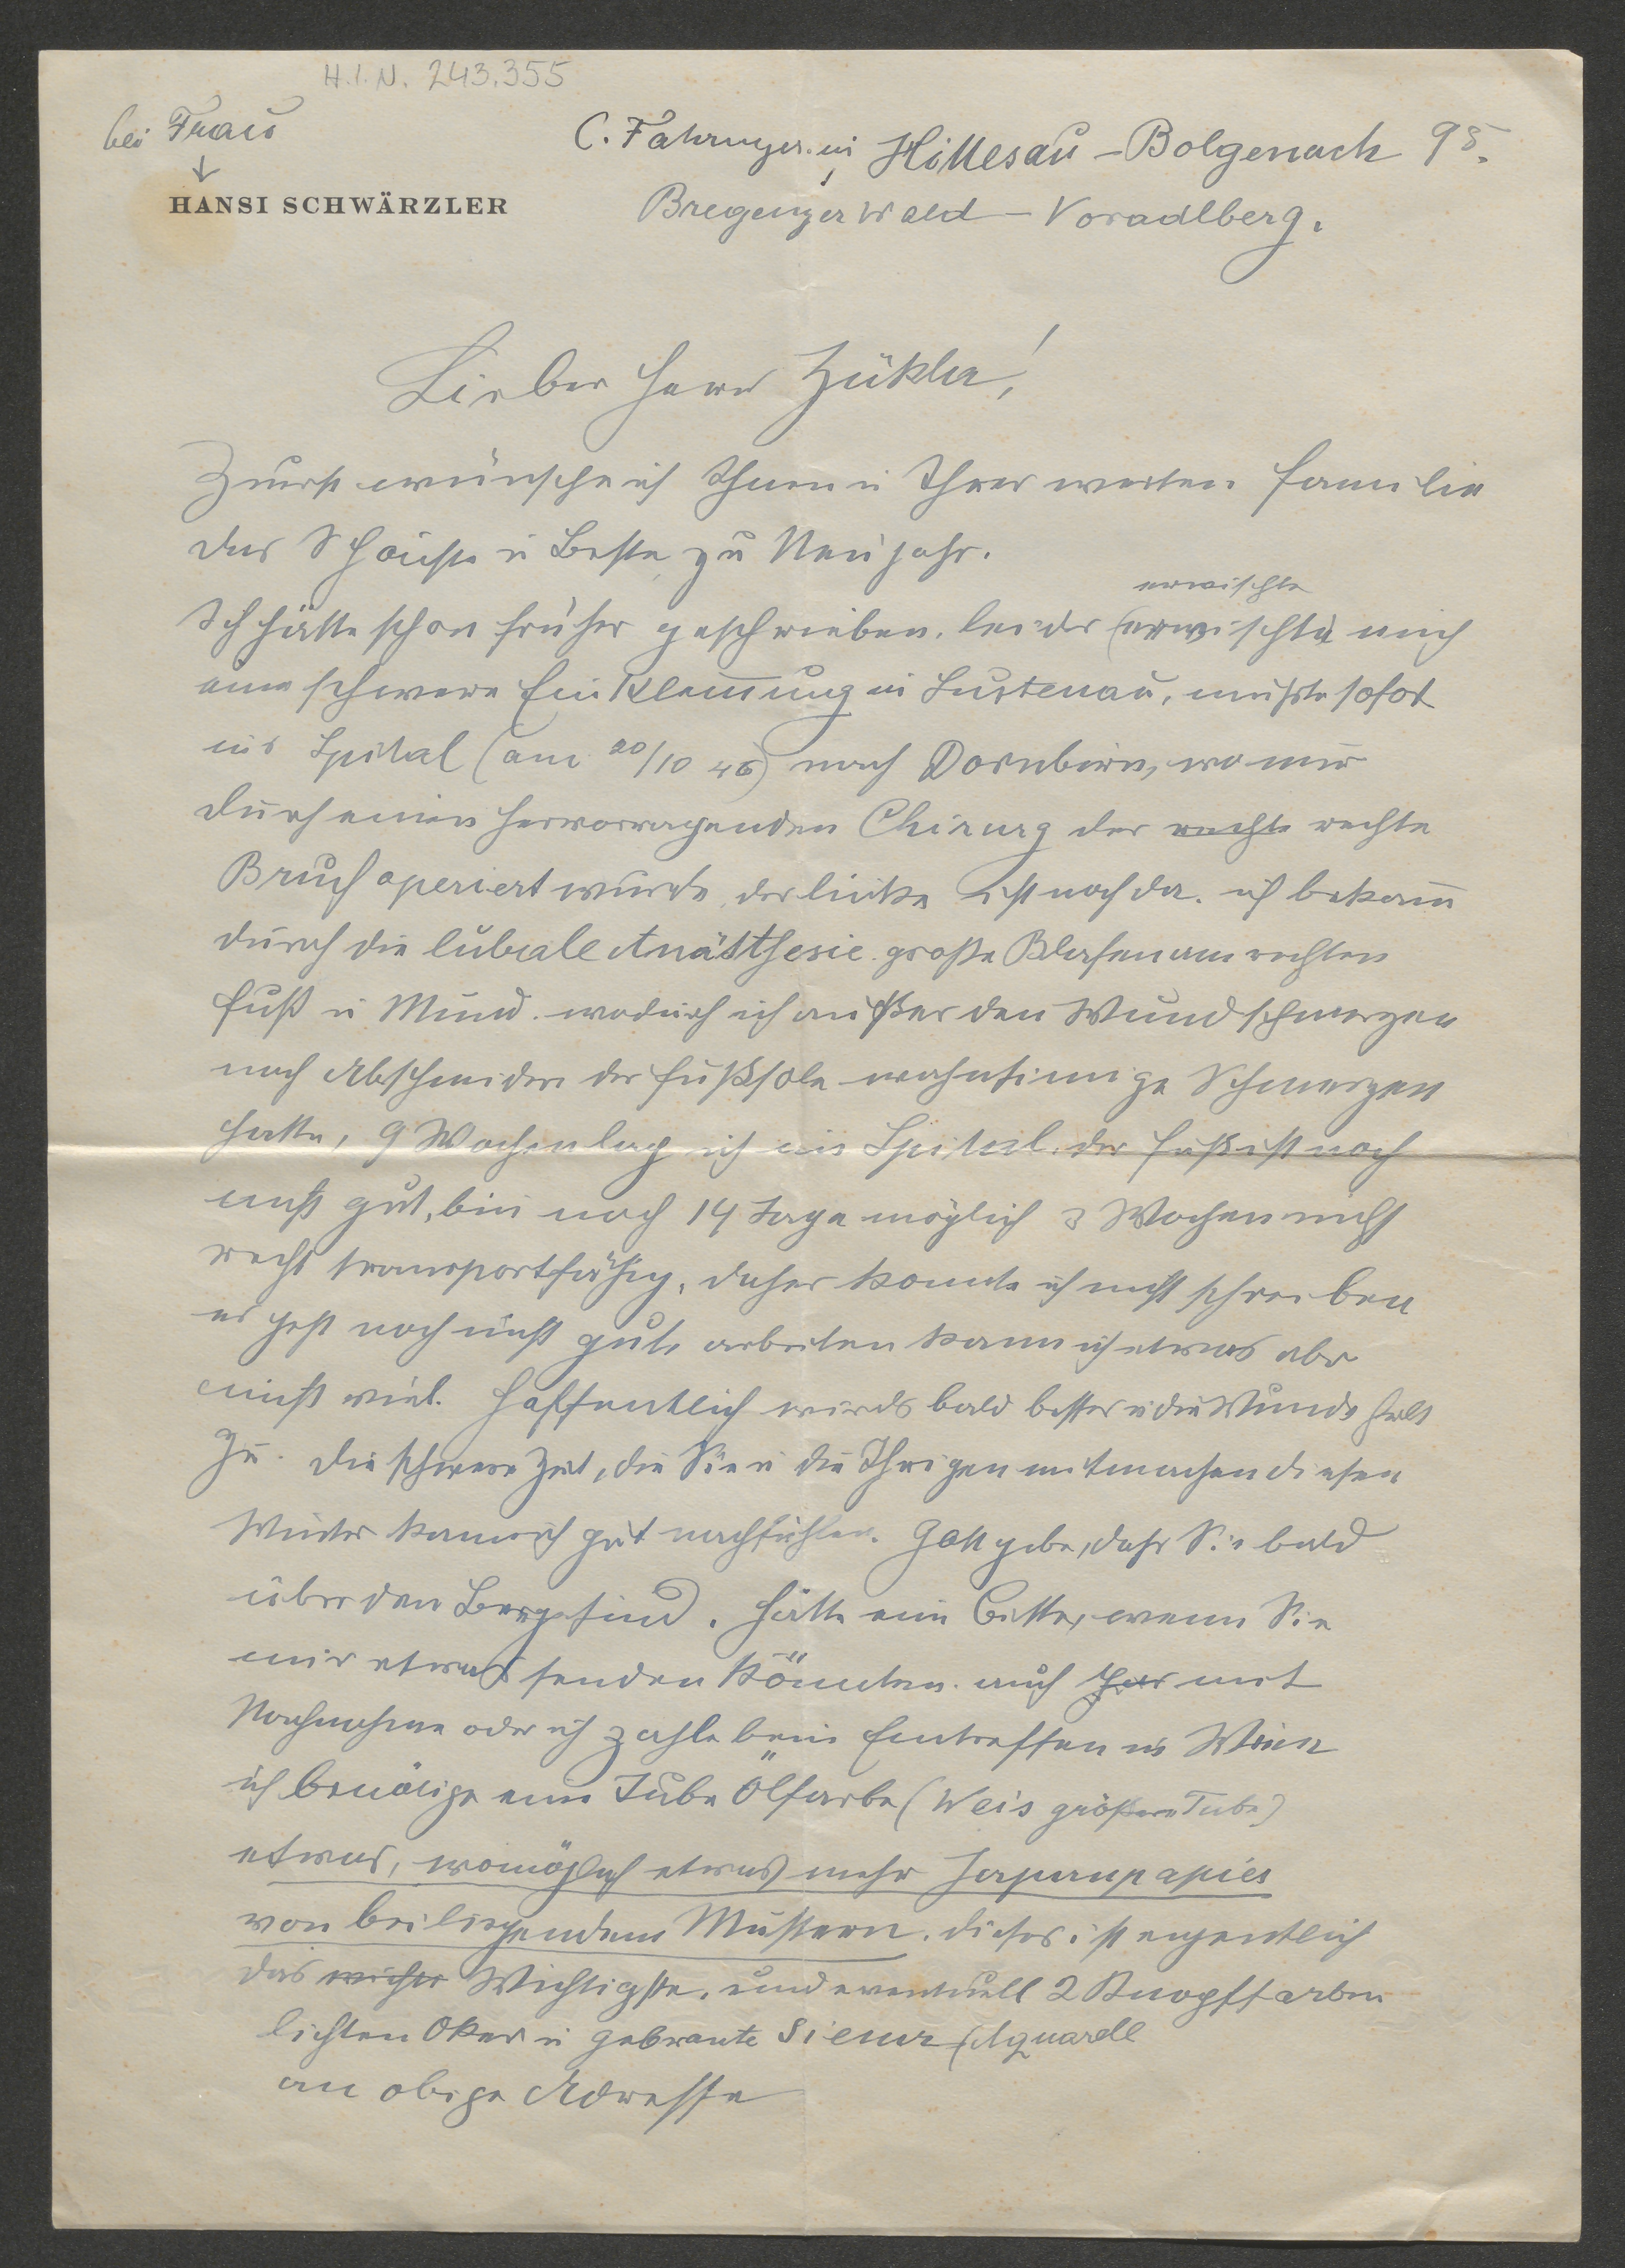 H.I.N. 243.355
bei Frau
C. Fahringer in Hittesau - Bolgenach 95.
HANSI SCHWÄRZLER
Bregenzerwald - Voradlberg.
Lieber Herr Zükler!
Zuerst wünsche ich Ihnen u Ihrer werten Familie
das Schönste u Beste zu Neujahr.
erwischte
Ich hätte schon früher geschrieben, leider (erwischte mich
eine schwere Einklemung in Lustenau, mußte sofort
ins Spital (am 20/10 46) nach Dornbirn, wo mir
durch einen hervorragenden Chirurg der rechte rechte
Bruch operiert wurde, der linke ist noch da. ich bekam
durch die lubiale Anästhesie große Blasen am rechten
Fuß u Mund. wodurch ich außer den Wundschmerzen
nach Abschneiden der Fußsole wahnsinnige Schmerzen
hatte, 9 Wochen lag ich im Spital. der Fuß ist noch
nicht gut, bin noch 14 Tage möglich 3 Wochen nicht
recht transportfähig, daher konnte ich nicht schreiben
es geht noch nicht gut, arbeiten kann ich etwas aber
nicht viel. Hoffentlich wirds bald besser u die Wunde heilt
zu. Die schwere Zeit, die Sie u die Ihrigen mitmachen diesen
Winter kann ich gut nachfühlen. Gott gebe, dass Sie bald
über den Berg sind. Hätte eine Bitte, wenn Sie
mir etwas senden könnten. auch per mit
Nachnahme oder ich zahle beim Eintreffen in Wien
ich benötige eine Tube Ölfarbe (Weis größere Tube)
etwas, womöglich etwas mehr Japanpapier
von beiliegendem Mustern. dieses ist eigentlich
das wichte Wichtigste. und eventuell 2 Knopffarben
lichten Oker u gebrante Siena (Aquarell
an obige Adresse